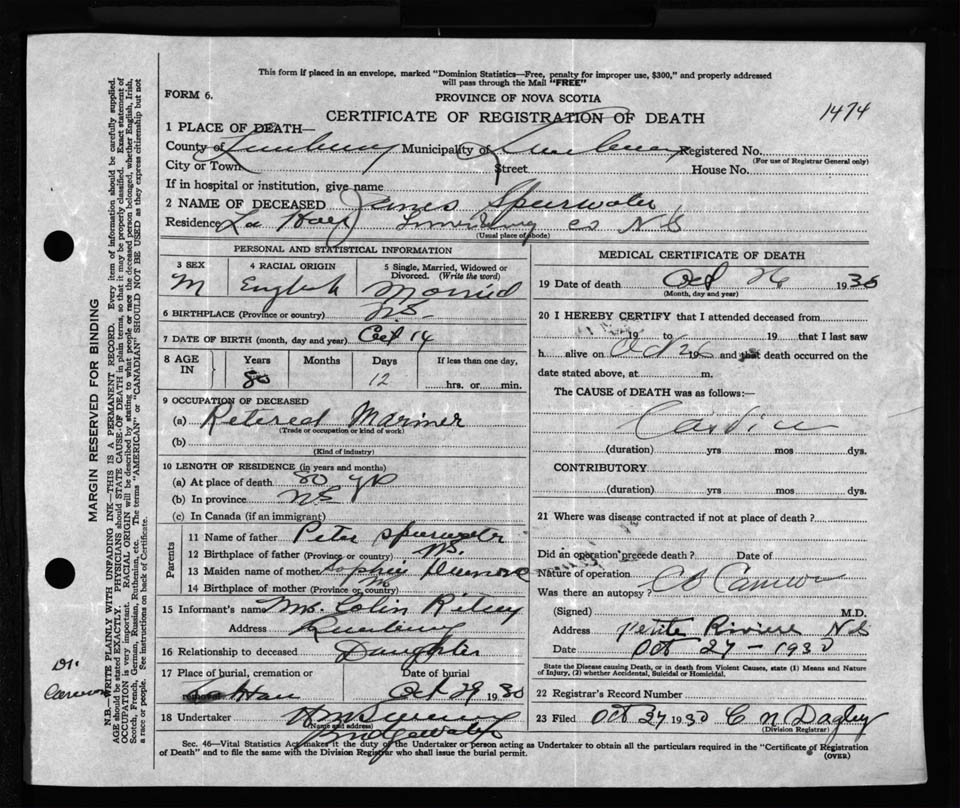 This form if placed in an envelope, marked "Dominion Statistics—Free, penalty for improper use, $300," and properly addressed
will pass through the Mail "FREE"
FORM 6.
PROVINCE OF NOVA SCOTIA
1474
CERTIFICATE OF REGISTRATION OF DEATH
1 PLACE OF DEATH—
County of Lunenburg Municipality of Lunenburg Registered No.
(For use of Registrar General only)
City or Town Street House No.
If in hospital or institution, give name
2 NAME OF DECEASED James Spurwater
Residence La Have Lunenburg Co N S
(Usual place of abode)
PERSONAL AND STATISTICAL INFORMATION
3 SEX
M
4 RACIAL ORIGIN
English
5 Single, Married, Widowed or
Divorced. (Write the word)
Married
6 BIRTHPLACE (Province or country) N.S.
7 DATE OF BIRTH (month, day and year) Oct 14
8 AGE
IN
Years
80
Months
Days
12
If less than one day,
hrs. or min.
9 OCCUPATION OF DECEASED
(a) Retired Mariner
(Trade or occupation or kind of work)
(b)
(Kind of industry)
10 LENGTH OF RESIDENCE (in years and months)
(a) At place of death 80 yrs
(b) In province N S
(c) In Canada (if an immigrant)
Parents
11 Name of father Peter Spurwater
12 Birthplace of father (Province or country) N.S.
13 Maiden name of mother Sophia
14 Birthplace of mother (Province or country) NS
15 Informant's name Mrs. Colin Ritcey
Address
16 Relationship to deceased Daughter
17 Place of burial, cremation or
removal
Date of burial
Oct 29 1930
18 Undertaker
(Name and address)
Bridgewater
MEDICAL CERTIFICATE OF DEATH
19 Date of death Oct 26 1930
(Month, day and year)
20 I HEREBY CERTIFY that I attended deceased from
19 to 19 that I last saw
h alive on Oct 26 19 and that death occurred on the
date stated above, at m.
The CAUSE OF DEATH was as follows:—
Cardiac
(duration) yrs mos dys.
CONTRIBUTORY
(duration) yrs mos dys.
21 Where was disease contracted if not at place of death?
Did an operation precede death? Date of
Nature of operation
Was there an autopsy?
(Signed) M.D.
Address Petite Riviere N S
Date Oct 27 – 1930
State the Disease causing Death, or in death from Violent Causes, state (1) Means and Nature
of Injury, (2) whether Accidental, Suicidal or Homicidal.
22 Registrar's Record Number
23 Filed Oct 27 1930 C N Dagley
(Division Registrar)
Sec. 46—Vital Statistics Act makes it the duty of the Undertaker or person acting as Undertaker to obtain all the particulars required in the "Certificate of Registration
of Death" and to file the same with the Division Registrar who shall issue the burial permit.
(OVER)
MARGIN RESERVED FOR BINDING
N.B.—WRITE PLAINLY WITH UNFADING INK—THIS IS A PERMANENT RECORD. Every item of information should be carefully supplied.
AGE should be stated EXACTLY. PHYSICIANS should STATE CAUSE OF DEATH in plain terms, so that it may be properly classified. Exact statement of
OCCUPATION is very important. RACIAL ORIGIN will be described by stating to what people or race the deceased person belonged, whether English, Irish,
Scotch, French, German, Russian, Ruthenian, etc. The terms "AMERICAN" or "CANADIAN" SHOULD NOT BE USED as they express citizenship but not
a race or people. See instructions on back of Certificate.
Dr.